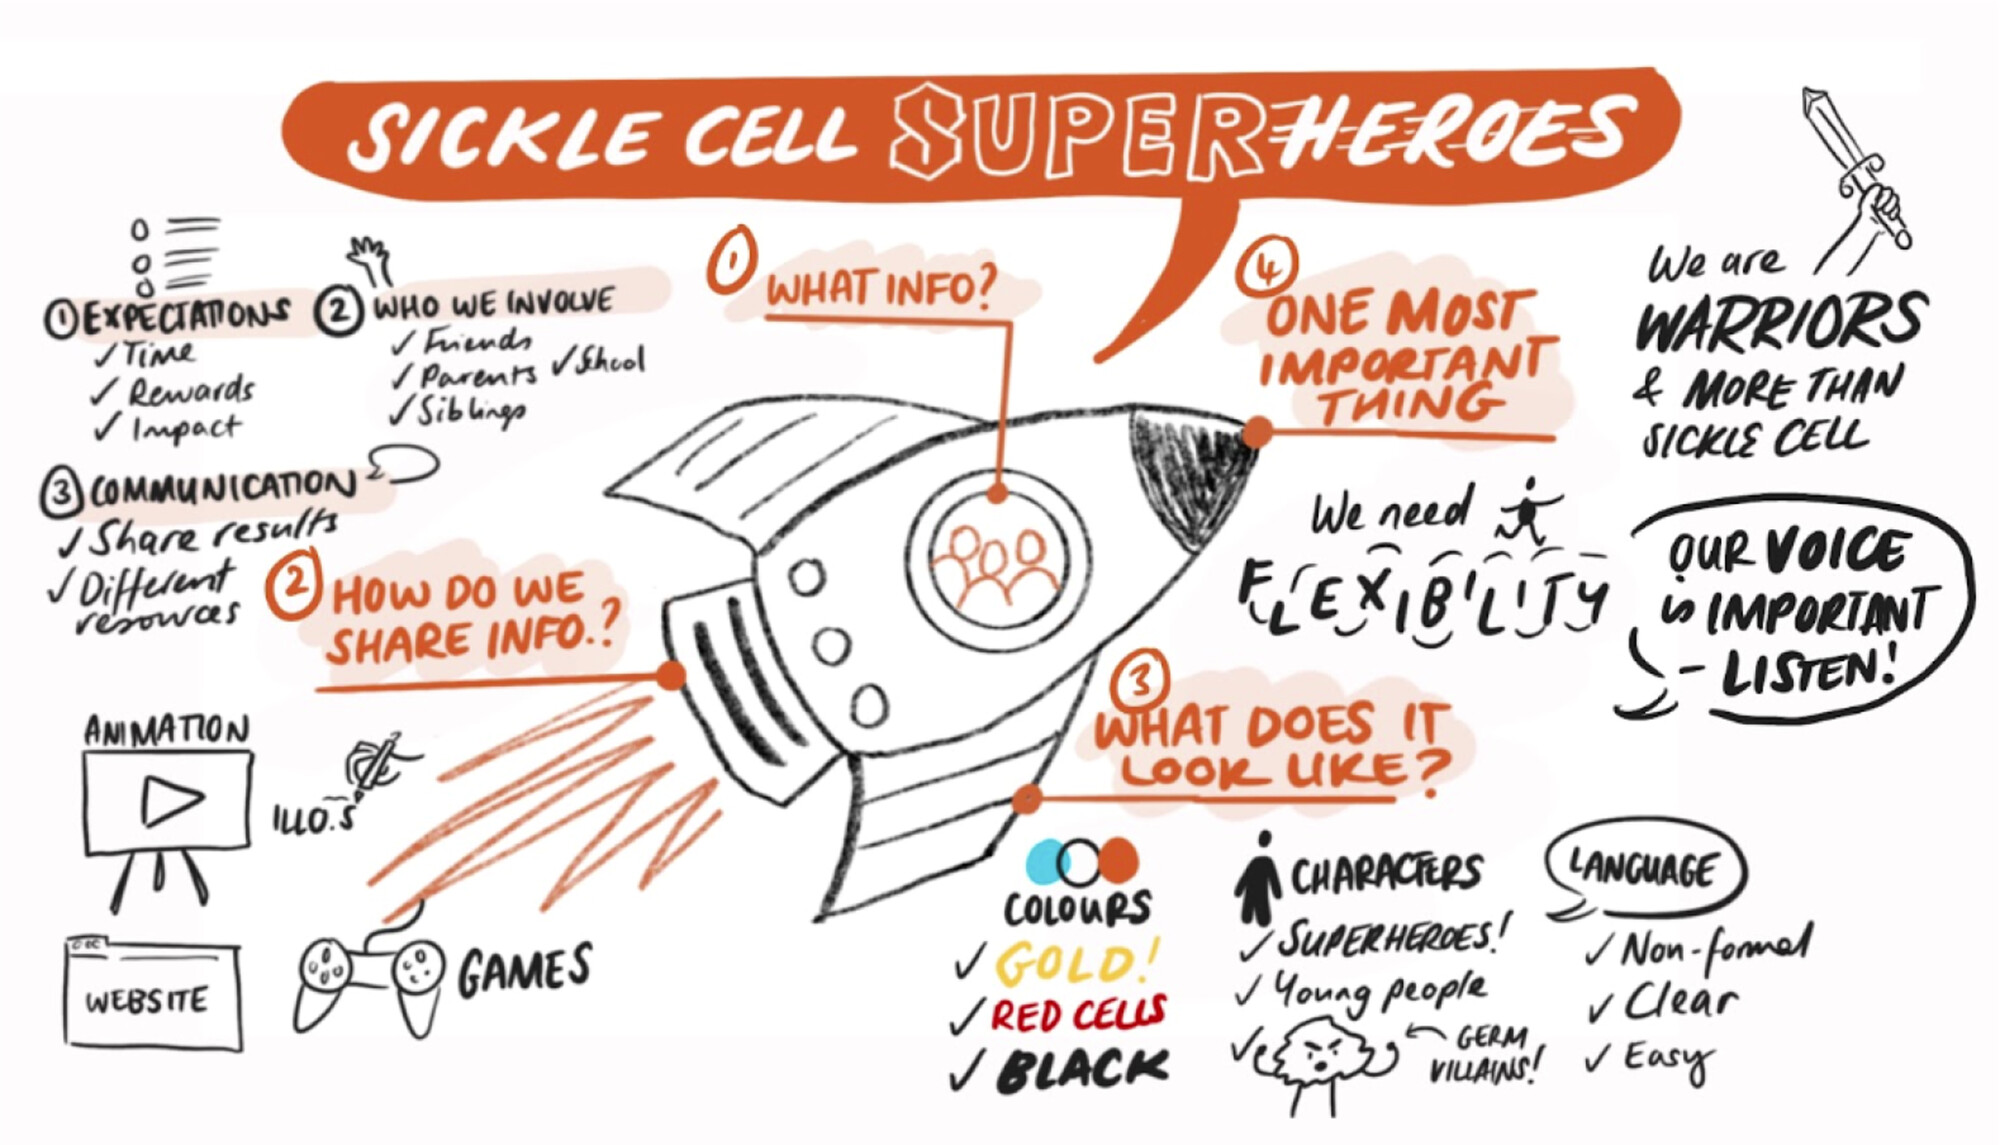 SICKLE CELL SUPERHEROES
① WHAT INFO?
① EXPECTATIONS
✓ Time
✓ Rewards
✓ Impact
② WHO WE INVOLVE
✓ Friends
✓ Parents ✓ School
✓ Siblings
③ COMMUNICATION
✓ Share results
✓ Different
resources
② HOW DO WE
SHARE INFO.?
ANIMATION
ILLO.S
WEBSITE
GAMES
③ WHAT DOES IT
LOOK LIKE?
COLOURS
✓ GOLD!
✓ RED CELLS
✓ BLACK
CHARACTERS
✓ SUPERHEROES!
✓ Young people
✓
GERM
VILLAINS!
LANGUAGE
✓ Non-formal
✓ Clear
✓ Easy
④ ONE MOST
IMPORTANT
THING
We are
WARRIORS
& MORE THAN
SICKLE CELL
We need
FLEXIBILITY
OUR VOICE
is IMPORTANT
- LISTEN!